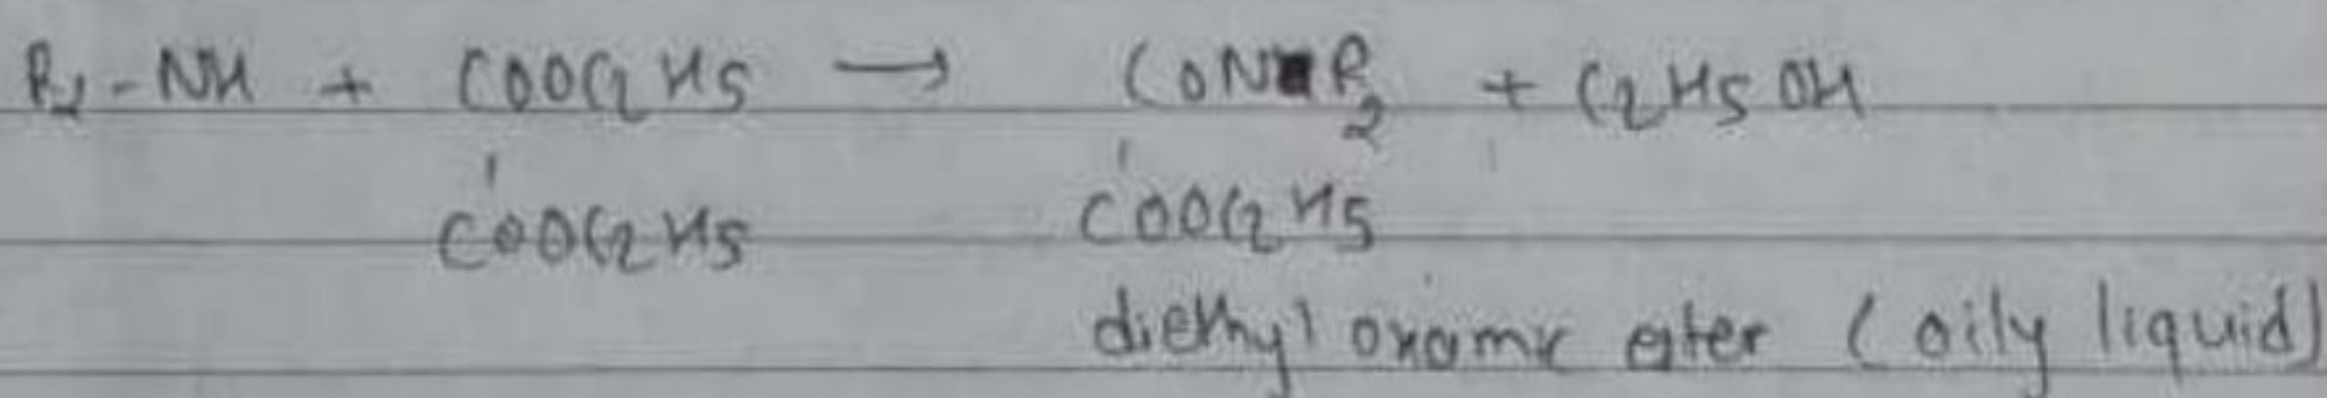 R2-NH + COOC2H5 → CONR2 + C2H5OH
COOC2H5 COOC2H5
diethyl oxamic ester (oily liquid)